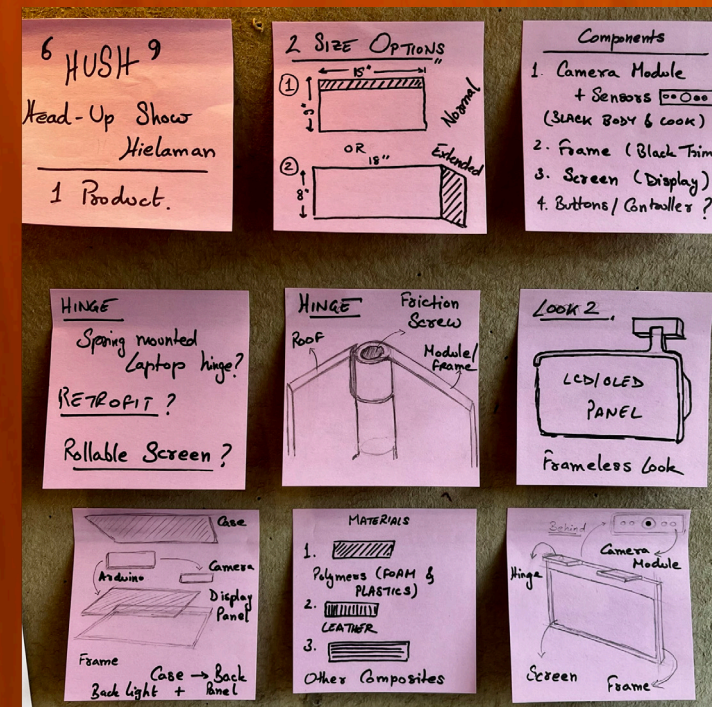 ‘HUSH’
Head-Up Show
Hielaman
1 Product.
2 SIZE OPTIONS
1
15"
6"
Normal
OR
2
18"
8"
Extended
Components
1. Camera Module
+ Sensors
(BLACK BODY & LOOK)
2. Frame (Black Trim
3. Screen (Display)
4. Buttons/Controller ?
HINGE
Spring mounted
Laptop hinge?
RETROFIT ?
Rollable Screen ?
HINGE
Friction
Screw
ROOF
Module/
frame
LOOK 2.
LCD/OLED
PANEL
Frameless Look
Case
Arduino
Camera
Display
Panel
Frame
Case → Back
Back light + Panel
MATERIALS
1.
Polymers (FOAM &
PLASTICS)
2.
LEATHER
3.
Other Composites
Behind
Camera
Module
Hinge
Screen
Frame